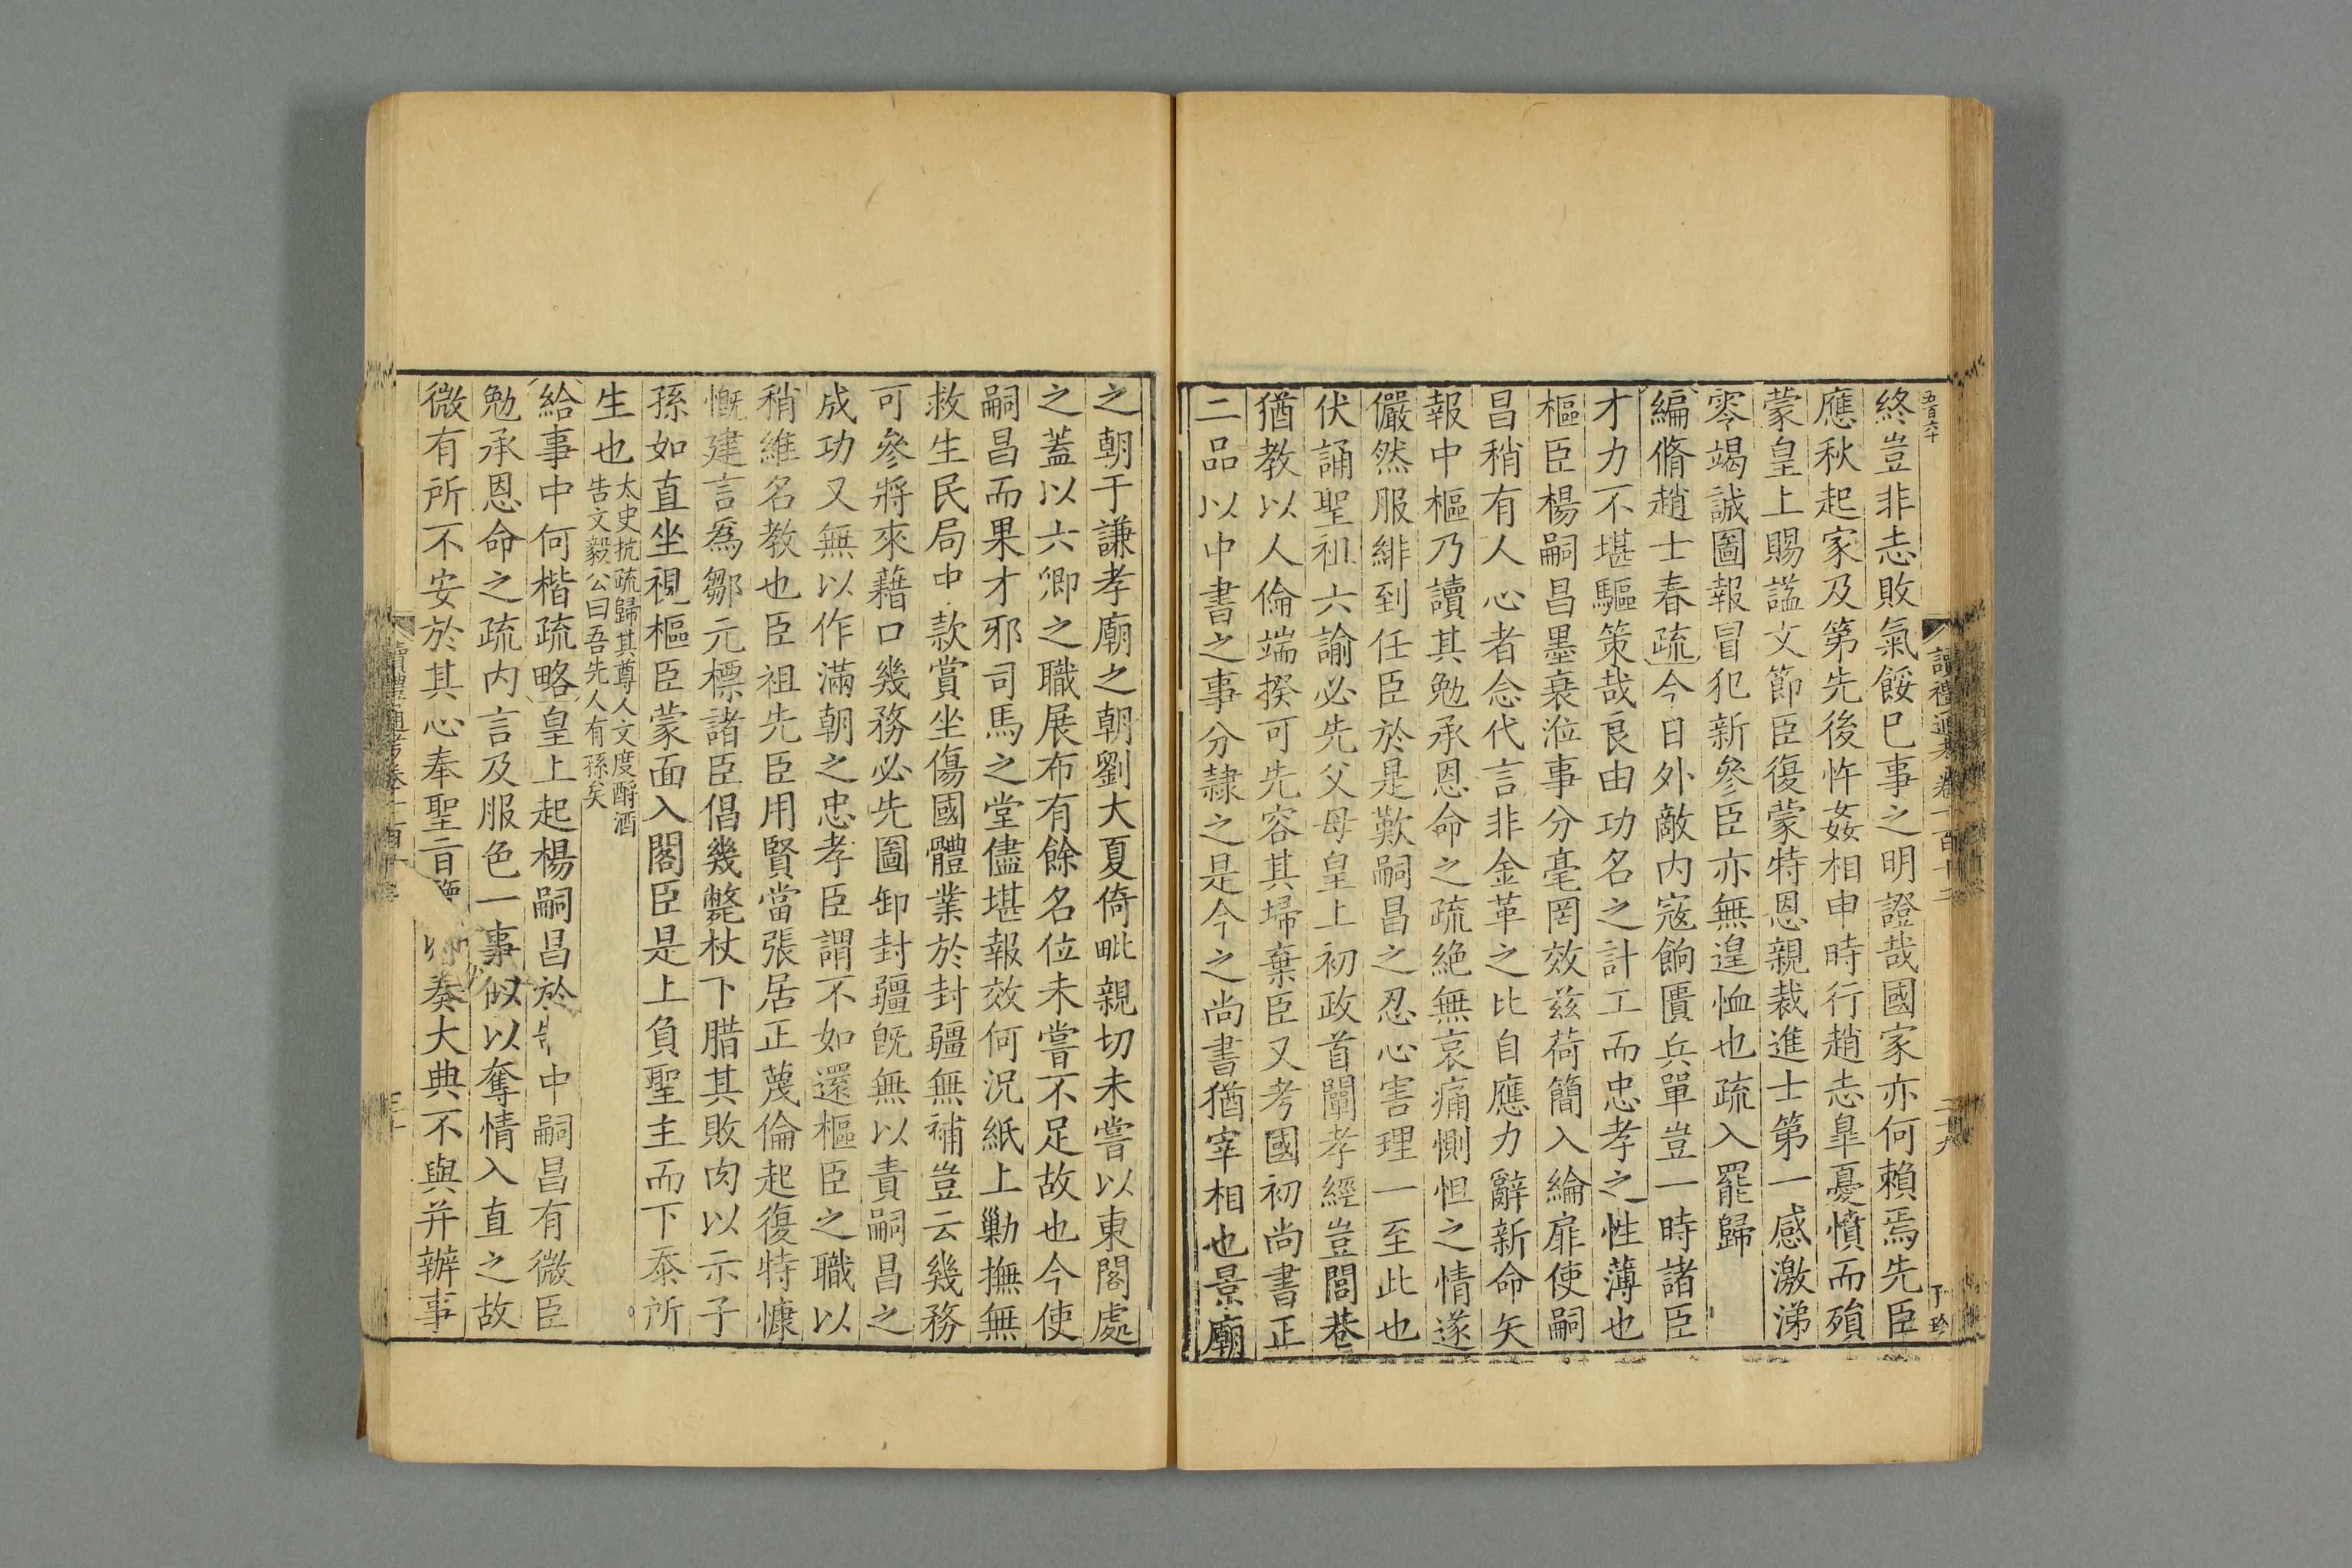 五百六十
終豈非志敗氣餒巳事之明證哉國家亦何賴焉先臣
應秋起家及第先後忤姦相申時行趙志臯憂憤而殞
蒙皇上賜諡文節臣復蒙特恩親裁進士第一感激涕
零竭誠圖報冒犯新參臣亦無遑恤也疏入罷歸
編脩趙士春疏今日外敵内寇餉匱兵單豈一時諸臣
才力不堪驅策哉良由功名之計工而忠孝之性薄也
樞臣楊嗣昌墨衰涖事分毫罔效兹荷簡入綸扉使嗣
昌稍有人心者念代言非金革之比自應力辭新命矢
報中樞乃讀其勉承恩命之疏絶無哀痛惻怛之情遂
儼然服緋到任臣於是歎嗣昌之忍心害理一至此也
伏誦聖祖六諭必先父母皇上初政首闡孝經豈閭巷
猶教以人倫端揆可先容其埽棄臣又考國初尚書正
二品以中書之事分隷之是今之尚書猶宰相也景廟
之朝于謙孝廟之朝劉大夏倚毗親切未嘗以東閣處
之蓋以六卿之職展布有餘名位未嘗不足故也今使
嗣昌而果才邪司馬之堂儘堪報效何況紙上勦撫無
救生民局中款賞坐傷國體業於封疆無補豈云幾務
可參將來藉口幾務必先圖卸封疆旣無以責嗣昌之
成功又無以作滿朝之忠孝臣謂不如還樞臣之職以
稍維名教也臣祖先臣用賢當張居正蔑倫起復特慷
慨建言爲鄒元標諸臣倡幾斃杖下腊其敗肉以示子
孫如直坐視樞臣蒙面入閣臣是上負聖主而下忝所
生也
太史抗疏歸其尊人文度酹酒
告文毅公曰吾先人有孫矣
給事中何楷疏略皇上起楊嗣昌於中嗣昌有微臣
勉承恩命之疏内言及服色一事似以奪情入直之故
微有所不安於其心奉聖旨奏大典不與并辦事